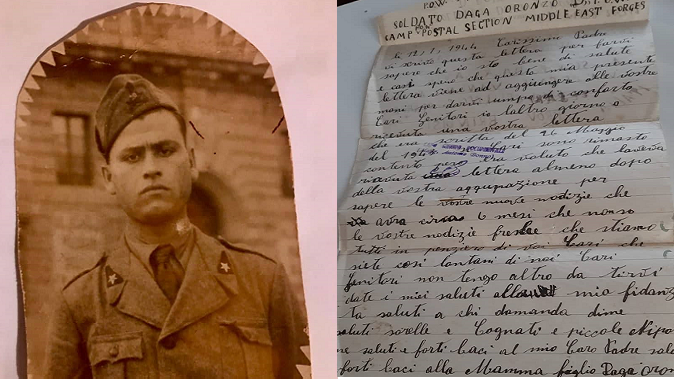 P.O.W.
SOLDATO DAGA ORONZO
CAMP POSTAL SECTION MIDDLE EAST FORGES
Li 12/1/1944 Carissimo Padre
scrivo questa lettera per farvi
sapere che io sto bene di salute
e così spero che questa mia presente
lettera viene ad aggiungere alle vostre
mani per darvi umpo di comforto
Cari Genitori io laltro giorno o
ricevuto una vostra lettera
che era scritta del 26 Maggio
del 1943 sono rimasto
contento però era valuto che laveva
ricevuta lettera almeno dopo
della vostra aggupazione per
sapere le vostre nuove nodizie che
avra circa 6 mesi che nonso
le vostre nodizie che stiamo
tutti in pensiero di voi Cari che
siete così lantani di noi Cari
Genitori non tengo altro da tirvi
date i miei saluti alla mia fidanz
ta saluti a chi domanda dime
saluti sorelle e Cognati e piccole Nipo
e saluti e forti baci al mio Caro Padre salu
forti baci alla Mamma figlio Daga Oron